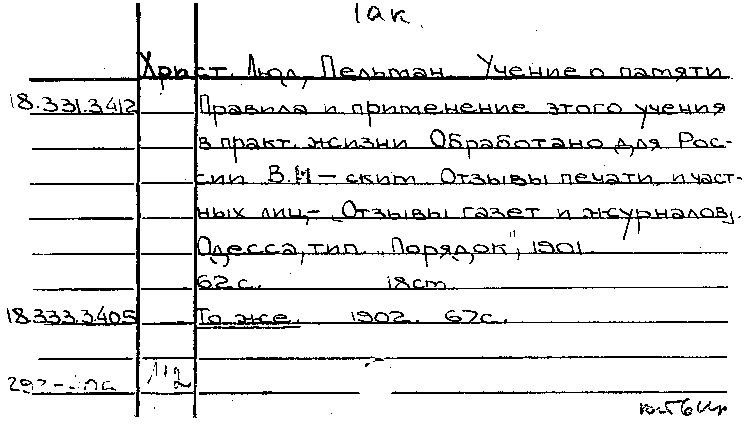 1ак.
Христ. Люд, Пельман. Учение о памяти
18.331.3412 Правила и применение этого учения
в практ. жизни Обработано для Рос-
сии В.М-ским. Отзывы печати и част-
ных лиц,- „Отзывы газет и журналов".
Одесса, тип. „Порядок", 1901.
62 с. 18 ст.
18.333.3405 То же. 1902. 67с.
112